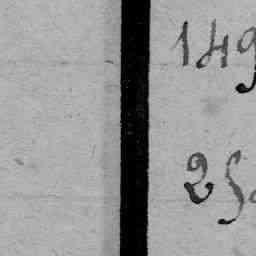 149
25